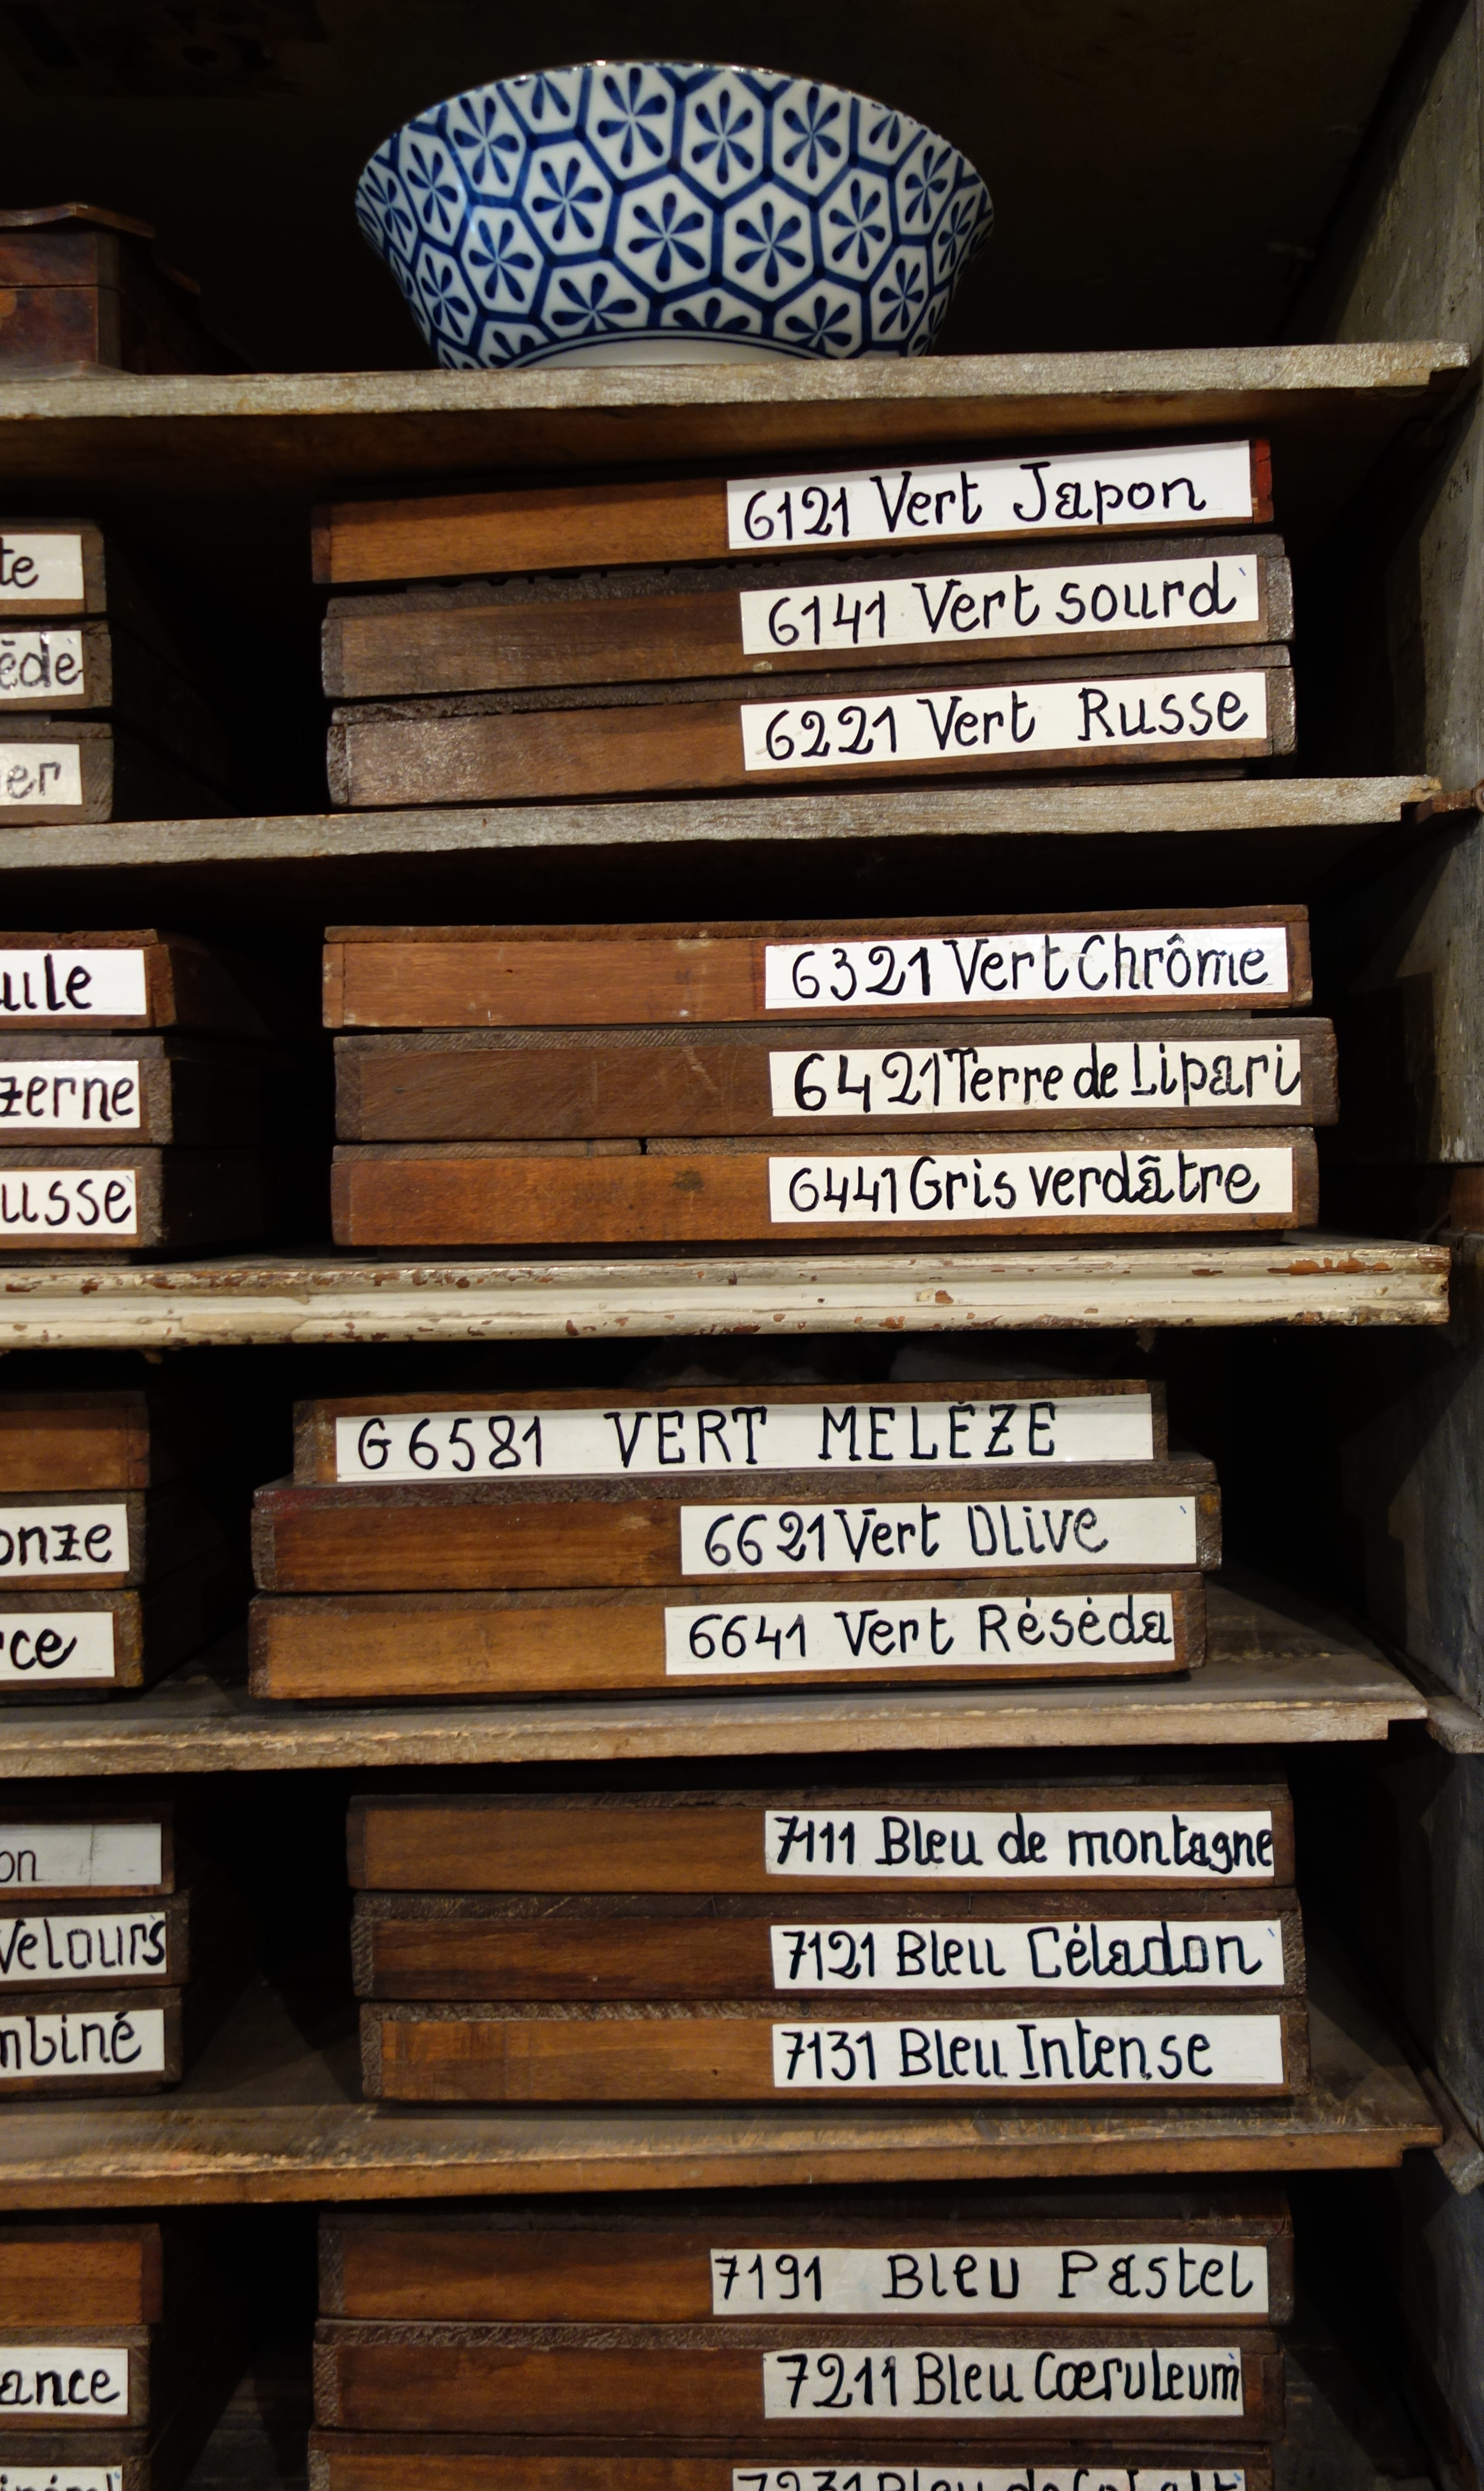 6121 Vert Japon
te
6141 Vert sourd
6221 Vert Russe
er
6321 Vert Chrôme
ule
6421 Terre de Lipari
zerne
6441 Gris verdâtre
usse
G 6581 VERT MELĒZE
6621 Vert Olive
onze
6641 Vert Réséda
rce
7111 Bleu de montagne
on
7121 Bleu Céladon
Velours
7131 Bleu Intense
mbiné
7191 Bleu Pastel
7211 Bleu Cœruleum
ance
7231 Bleu de Cobalt